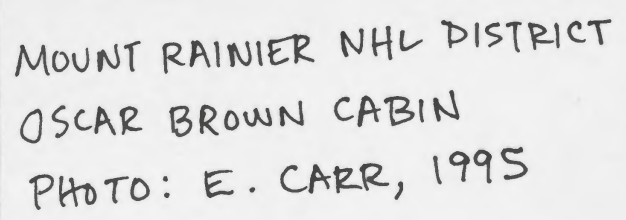 MOUNT RAINIER NHL DISTRICT
OSCAR BROWN CABIN
PHOTO: E. CARR, 1995